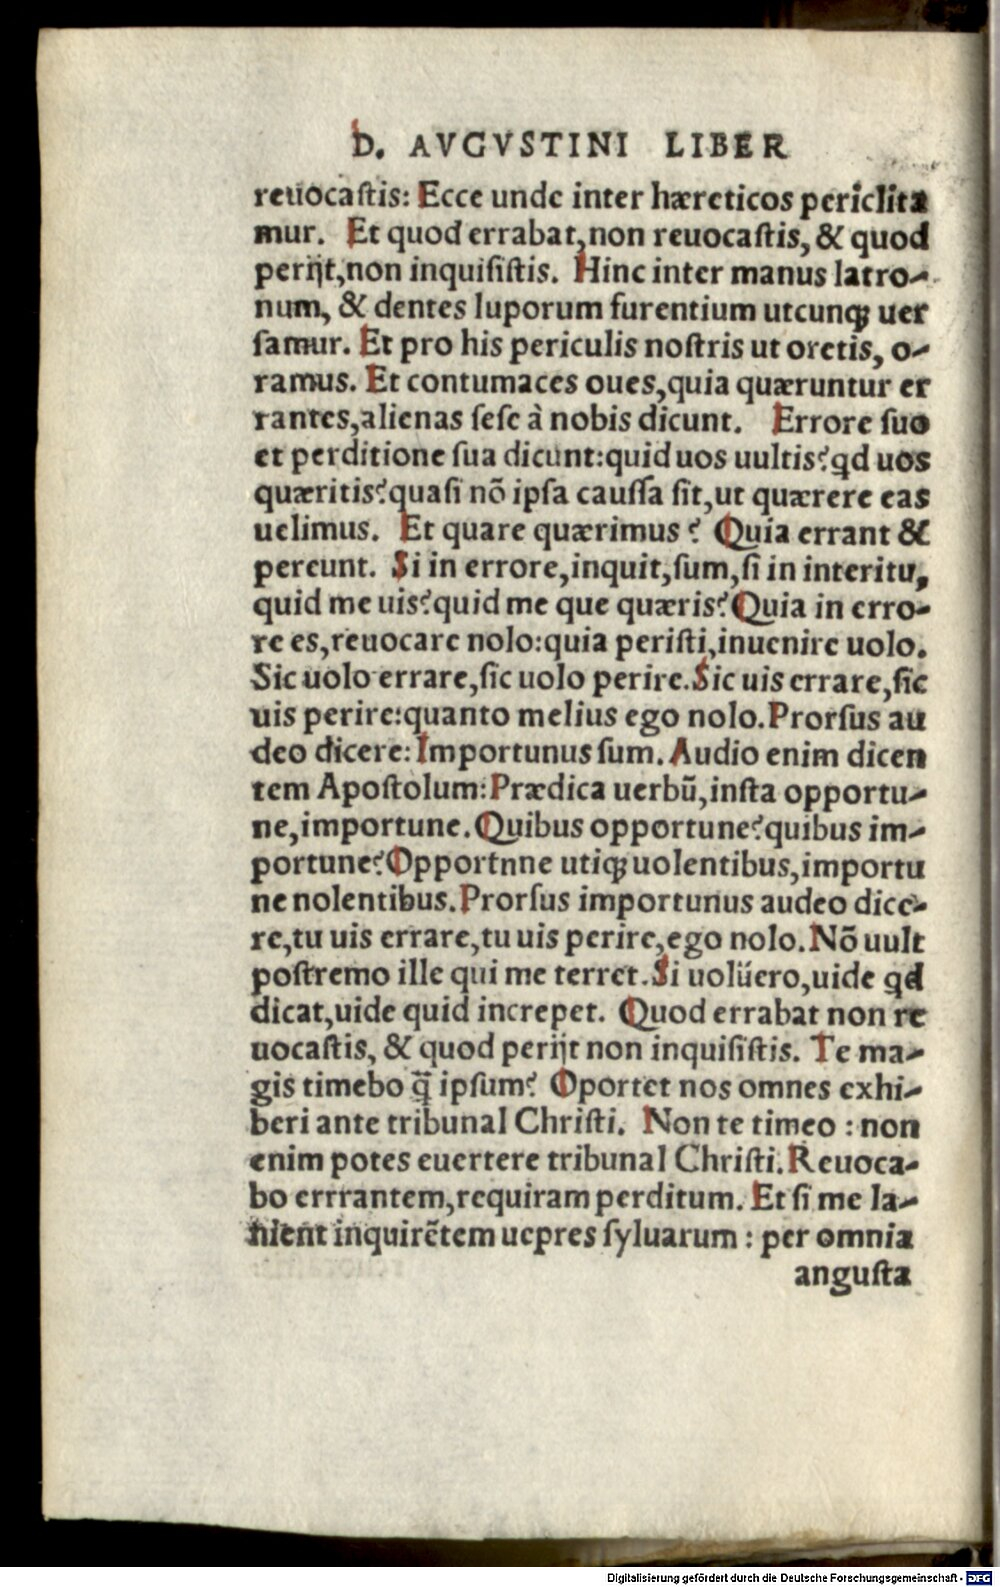 D. AVGVSTINI LIBER
reuocastis: Ecce unde inter hæreticos periclita
mur. Et quod errabat, non reuocastis, & quod
perijt, non inquisistis. Hinc inter manus latro-
num, & dentes luporum furentium utcunqꝫ uer
samur. Et pro his periculis nostris ut oretis, o-
ramus. Et contumaces oues, quia quæruntur er
rantes, alienas sese à nobis dicunt. Errore suo
et perditione sua dicunt: quid uos uultis? qd uos
quæritis? quasi nõ ipsa caussa sit, ut quærere eas
uelimus. Et quare quærimus? Quia errant &
pereunt. Si in errore, inquit, sum, si in interitu,
quid me uis? quid me que quæris? Quia in erro-
re es, reuocare nolo: quia peristi, inuenire uolo.
Sic uolo errare, sic uolo perire. Sic uis errare, sic
uis perire: quanto melius ego nolo. Prorsus au
deo dicere: Importunus sum. Audio enim dicen
tem Apostolum: Prædica uerbũ, insta opportu-
ne, importune. Quibus opportune? quibus im-
portune? Opportnne utiqꝫ uolentibus, importu
ne nolentibus. Prorsus importunus audeo dice-
re, tu uis errare, tu uis perire, ego nolo. Nõ uult
postremo ille qui me terret. Si uolüero, uide qd
dicat, uide quid increpet. Quod errabat non re
uocastis, & quod perijt non inquisistis. Te ma-
gis timebo q̃ ipsum? Oportet nos omnes exhi-
beri ante tribunal Christi. Non te timeo : non
enim potes euertere tribunal Christi. Reuoca-
bo errrantem, requiram perditum. Et si me la-
nient inquirẽtem uepres syluarum : per omnia
angusta
Digitalisierung gefördert durch die Deutsche Forschungsgemeinschaft - DFG